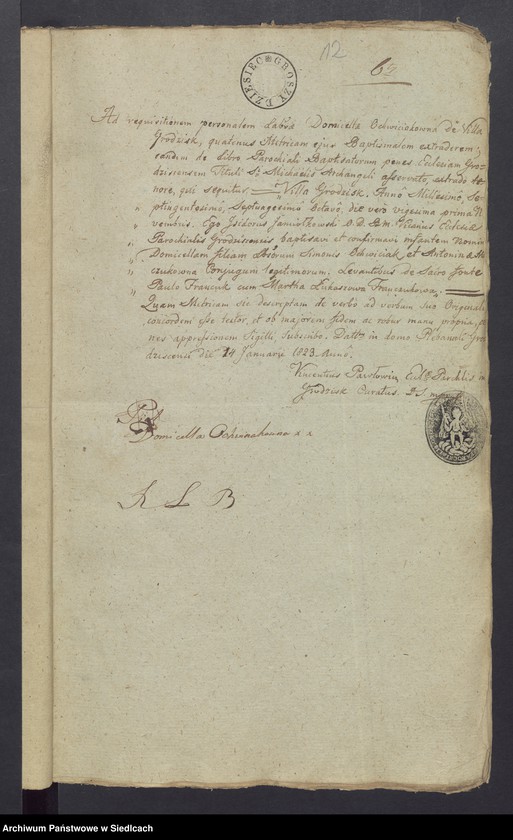 12
62
DZIESIĘC GROSZY
Ad requisitionem personalem Labor: Domicella Ochwiciakowna de Villa
Grodzisk, quatinus Metricam ejus Baptismalem extraderem;
eandem de Libro Parochiali Baptisatorum penes Ecclesiam Gro-
dziscensem Tituli Sti Michaelis Archangeli asservato, extrado te-
nore, qui sequitur = "Villa Grodzisk. Anno Millesimo, Se-
" ptingentesimo, Septuagesimo Octavo, die vero vigesima prima N-
" vembris. Ego Isidorus Janiolkowski O. D. Vicarius Ecclesiæ
" Parochialis Grodziscensis, baptisavi et confirmavi infantem nomine
" Domicellam filiam Simonis Ochwiciak et Antonina
" czukowna Conjugum legitimorum. Levantibus de Sacro fonte
" Paulo Franczuk cum Martha Lukaszowa Franczukowa" =
Quam Metricam sic descriptam de verbo ad verbum suo Originali
concordem esse testor, et ob majorem fidem ac robur manu propria,
nes appressionem Sigilli, subscribo. Datt: in domo Plebanali Gro-
dziscensi die 14 Januarii 1823 Anno.
Vincentius Pawłowin Eccl: Parchlis in
Grodzisk Curatus
Domicella
K L B
Archiwum Państwowe w Siedlcach